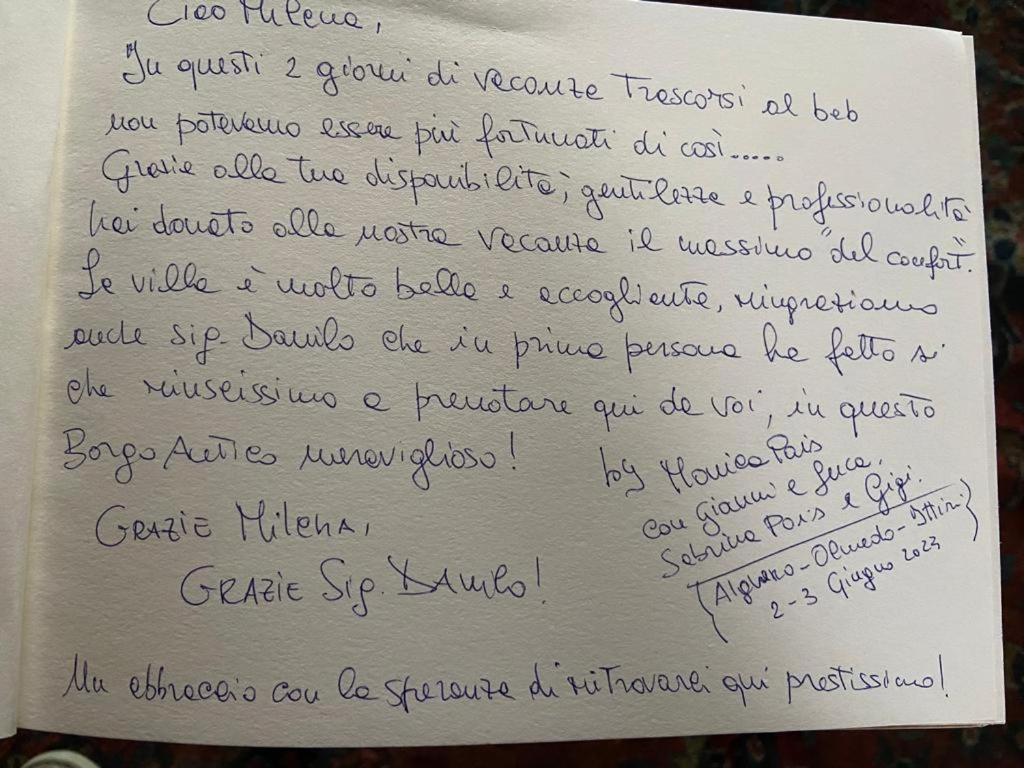 Ciao Milena,
In questi 2 giorni di vacanza trascorsi al beb
non potevamo essere più fortunati di così.....
Grazie alla tua disponibilità, gentilezza e professionalità
hai donato alla nostra vacanza il massimo "del confort".
La villa è molto bella e accogliente, ringraziamo
anche Sig. Danilo che in prima persona ha fatto sì
che riuscissimo a prenotare qui da voi, in questo
Borgo Antico meraviglioso!
GRAZIE MILENA,
GRAZIE Sig. DANILO!
by Monica Pais
con Gianni e Luca,
Sabrina Pais e Gigi.
(Alghero-Olmedo-Ittiri)
2-3 Giugno 2023
Un abbraccio con la speranza di ritrovarci qui prestissimo!